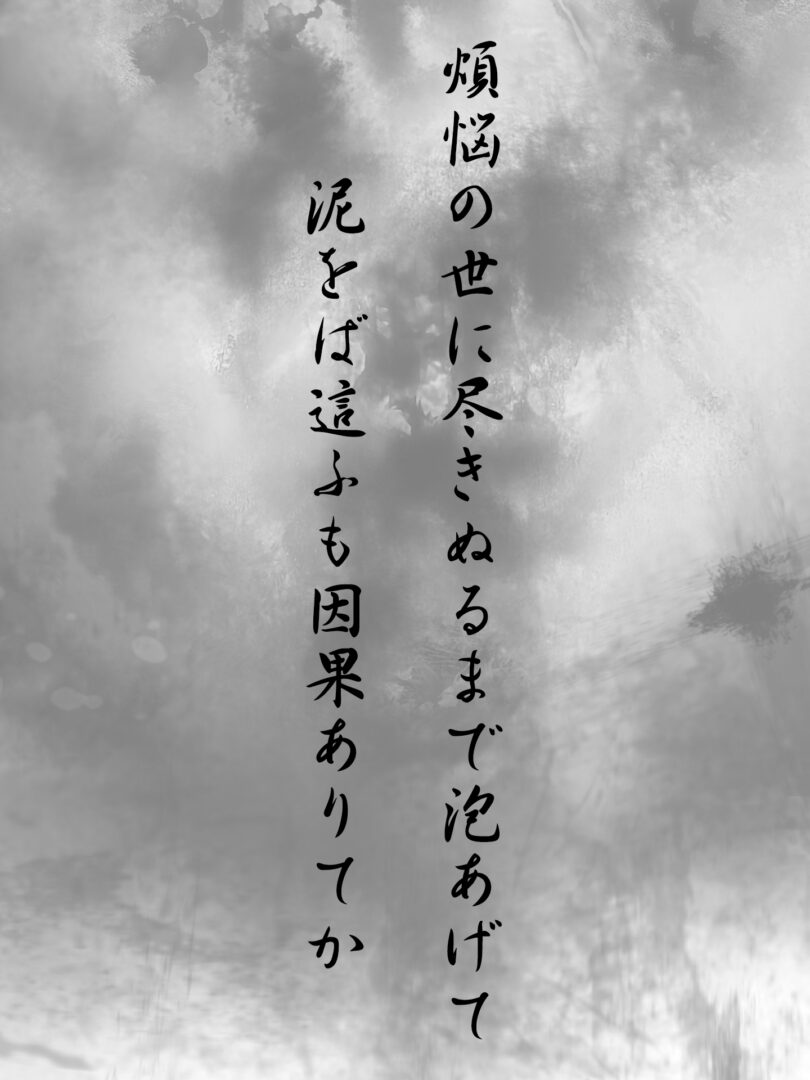 煩悩の世に尽きぬるまで泡あげて
泥をば這ふも因果ありてか